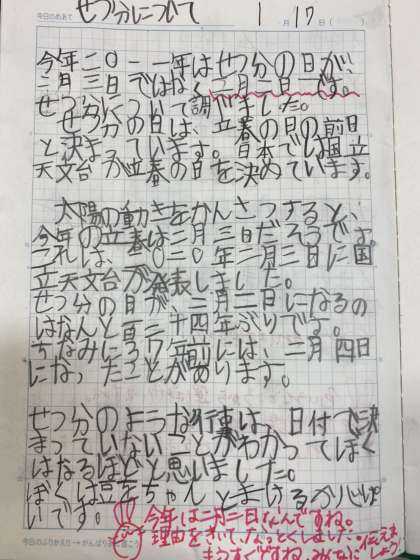 今日のめあて せつ分について 1月17日( )
今年二〇一一年はせつ分の日が、
二月三日ではなく二月二日です。
せつ分について調べました。
せつ分の日は、立春の日の前日
と決まっています。日本では国立
天文台が立春の日を決めています。
太陽の動きをかんさつすると、
今年の立春は二月三日だそうです。
これは、二〇二〇年二月三日に国
立天文台が発表しました。
せつ分の日が、二月二日になるの
はなんと百二十四年ぶりです。
ちなみに37年前には、二月四日
になったことがあります。
せつ分のような行事は、日付で決
まっていないことがわかってぼく
はなるほどと思いました。
ぼくは豆をちゃんとまけるか心ぱ
いです。
今年は二月二日なんですね。
理由をきいて、なっとくしました。
もうすぐですね。みんなに
伝え
ましょう
今日のふりかえり→がんばり